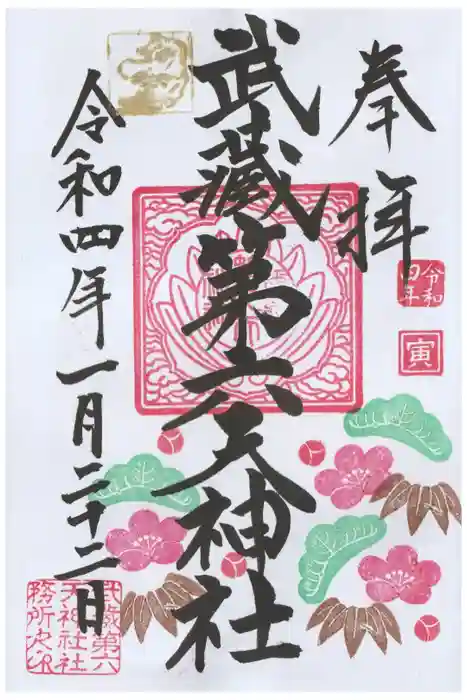 奉拝
令和
四年
寅
武蔵第六天神社
令和四年一月二十二日
武蔵第六
天神社社
務所之印